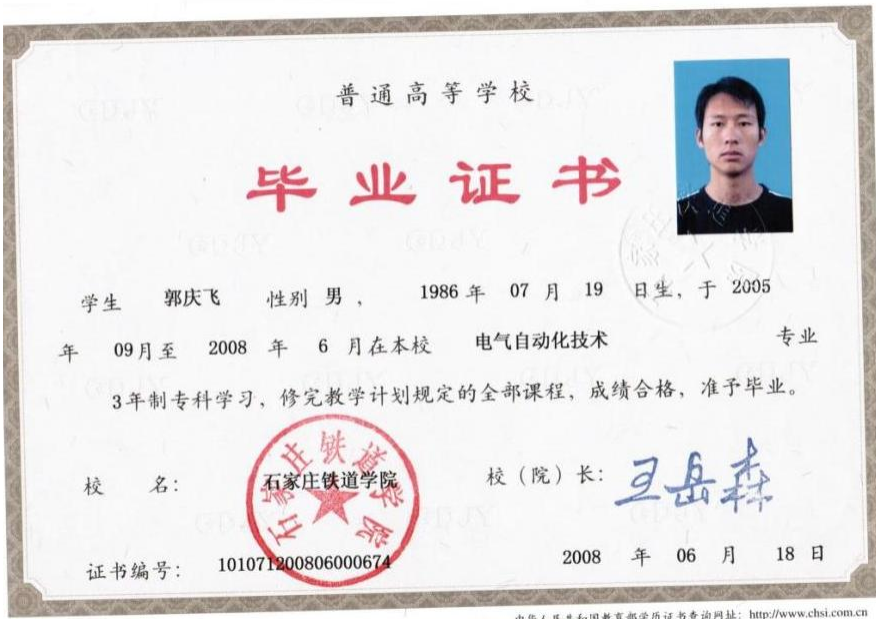 普通高等学校
毕业证书
学生 郭庆飞 性别 男 ， 1986 年 07 月 19 日生，于 2005
年 09 月至 2008 年 6 月在本校 电气自动化技术 专业
3 年制专科学习，修完教学计划规定的全部课程，成绩合格，准予毕业。
校 名： 石家庄铁道学院 校（院）长： 王岳森
石家庄铁道学院
证书编号： 101071200806000674 2008 年 06 月 18 日
中华人民共和国教育部学历证书查询网址： http://www.chsi.com.cn